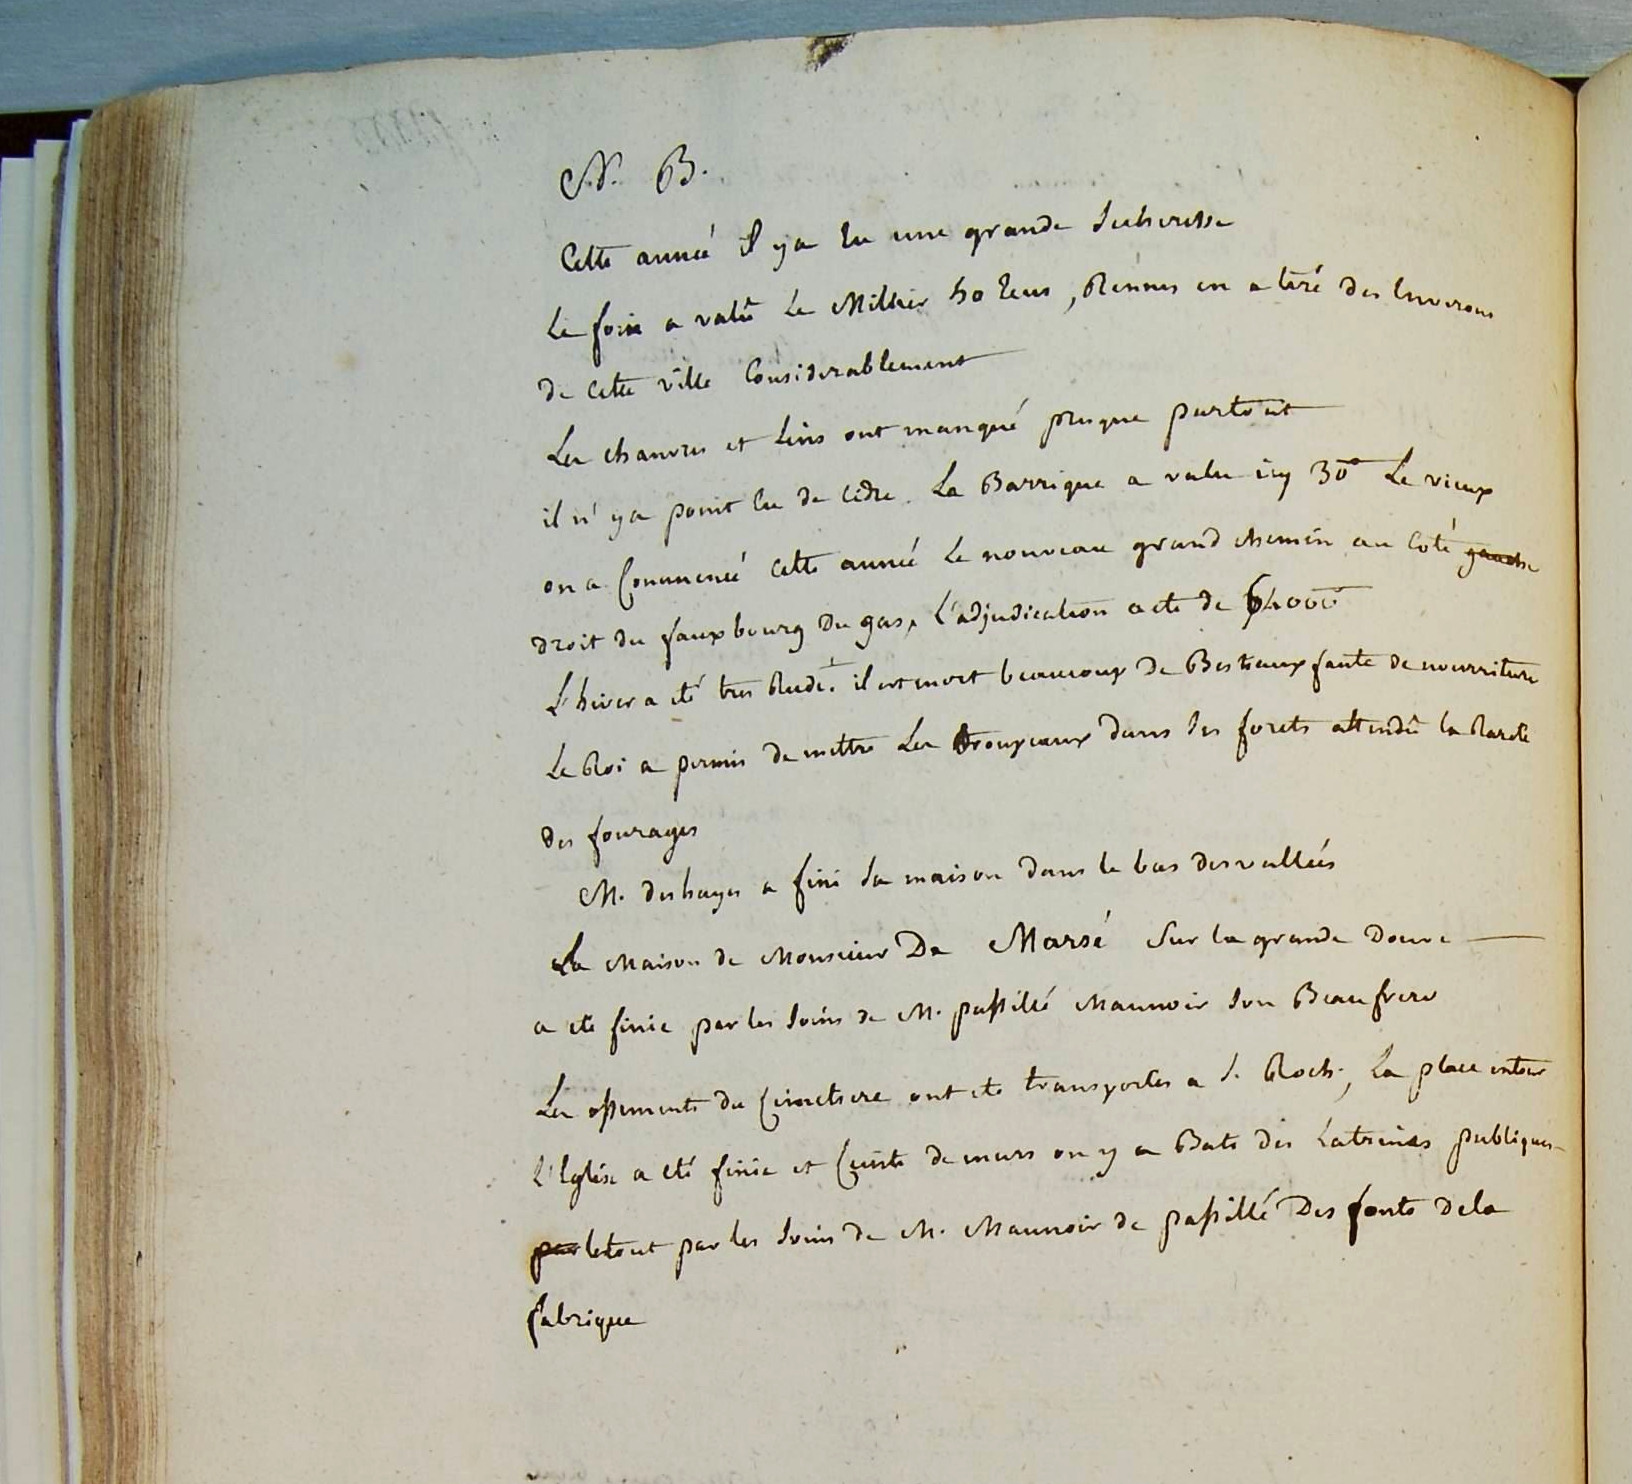 N. B.
Cette année il y a Eu une grande Secheresse
Le foin a valû Le Millier 50 Ecus, Rennes en a tiré des Environs
de cette ville Considerablement
Les chanvres et Lins ont manqué presque partout
il n'y a point Eu de Cidre. La Barrique a valu icy 30 Le vieux
on a Commencé cette année Le nouveau grand chemin au Coté gauche
droit du fauxbourg Du gast, L'adjudication a ete de 64000
L'hiver a eté tres Rude. il est mort beaucoup de Bestiaux faute de nourriture
Le Roi a permis de mettre Les troupeaux dans Ses forets attendû la Rareté
des fourages
M. deshayes a fini Sa maison dans le bas des vallées
La Maison de Monsieur De Marsé Sur la grande Douve
a ete finie par les Soins de M. passillé Maunoir Son Beaufrere
Les ossements du Cimetiere ont ete transportes a S. Roch, La place entour
L'Eglise a eté finie et Ceinte de murs on y a Bati des Latrines publiques
par le tout par les Soins de M. Maunoir de passillé Des fonts de la
fabrique